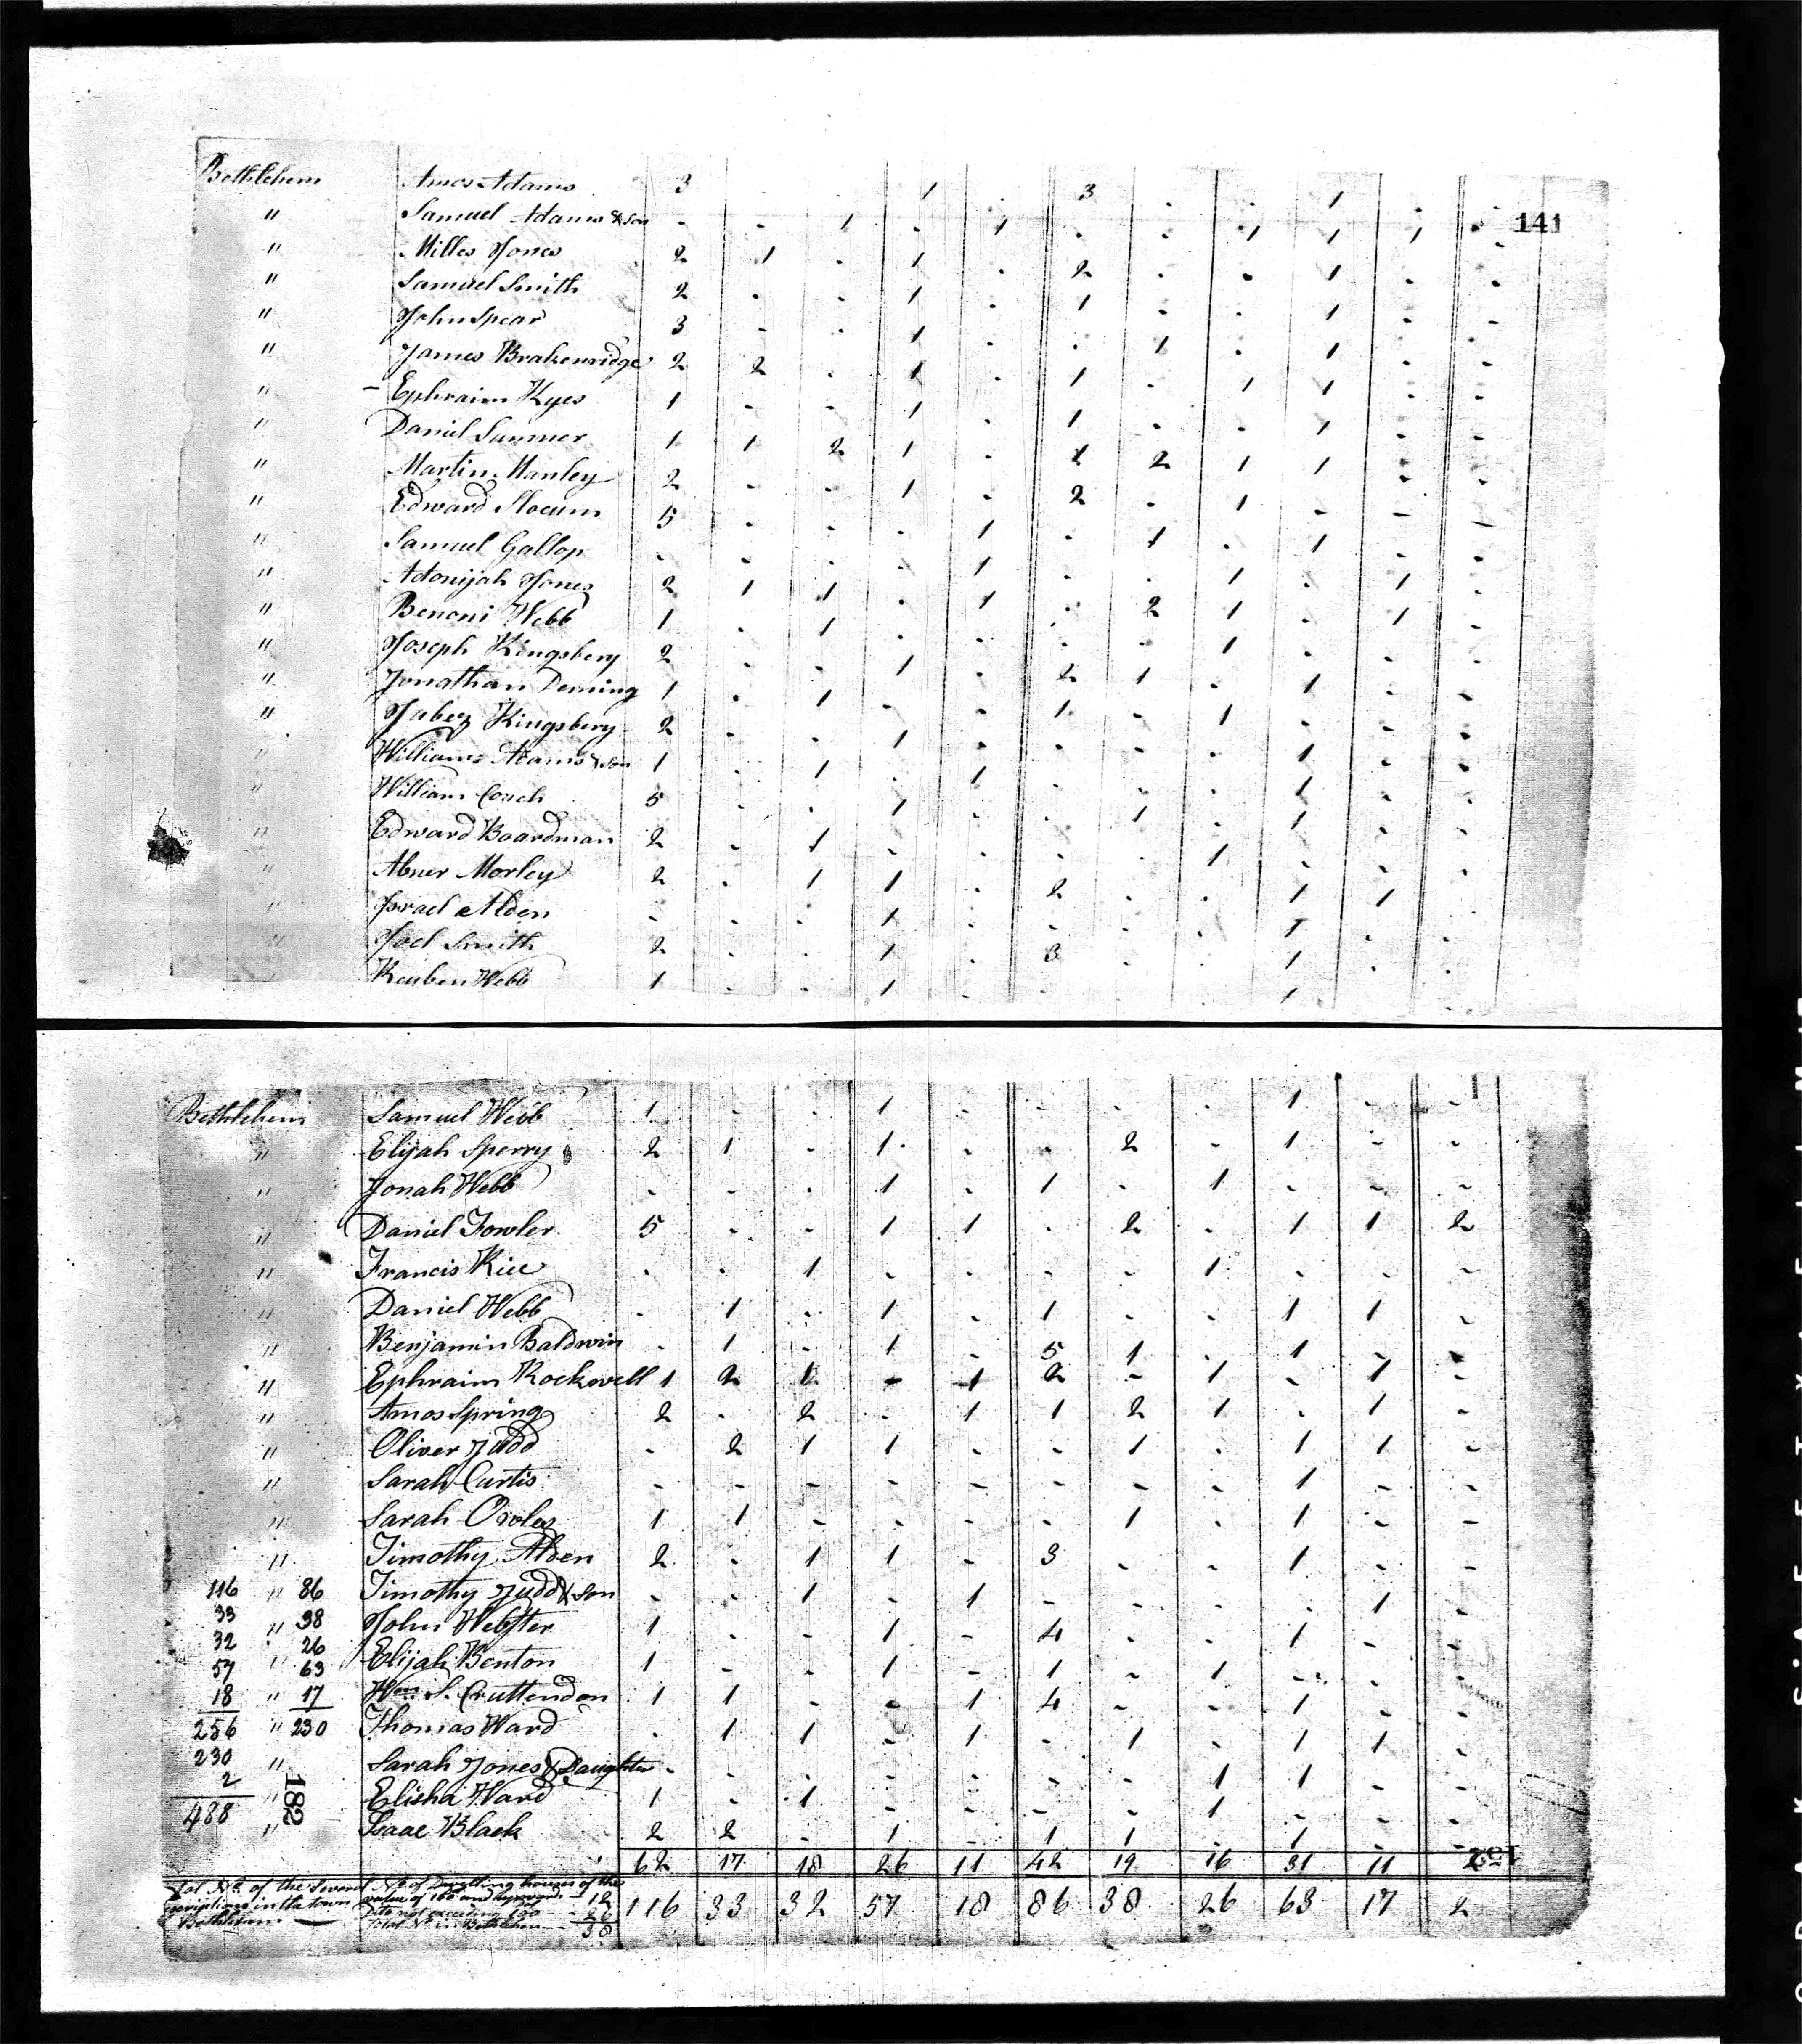 141
Bethlehem Amos Adams 3 . . 1 . 3 . . 1 . .
" Samuel Adams & son - - 1 . 1 . . 1 1 1 -
" Milles Jones 2 1 . 1 . 2 . . 1 . .
" Samuel Smith 2 . . 1 . 1 . . 1 . -
" John Spear 3 - . 1 . . 1 . 1 . .
" James Brakenridge 2 2 . 1 . 1 . 1 1 . .
" Ephraim Kyes 1 - - 1 . 1 . . 1 . -
" Daniel Sumner 1 1 2 1 . 1 2 1 1 - -
" Martin Manley 2 - - 1 - 2 . 1 - - -
" Edward Slocum 5 . . . 1 . 1 . 1 . .
" Samuel Gallop . . . . 1 . . 1 . 1 .
" Adonijah Jones 2 1 1 . 1 . 2 1 . 1 .
" Benoni Webb 1 . 1 . . . . 1 . . .
" Joseph Kingsbery 2 . . 1 . 2 1 . 1 . .
" Jonathan Deming 1 . 1 - - 1 - 1 . . -
" Jabez Kingsbery 2 . . 1 . . . . 1 . .
" Williams Adams & son 1 . 1 . 1 . . . 1 . .
" William Couch 5 . . 1 . . 1 . 1 . .
" Edward Boardman 2 . 1 - . . . 1 . . .
" Abner Morley 2 . 1 1 . 2 . . 1 1 .
" Israel Alden - . . 1 . . . . 1 . .
" Joel Smith 2 . . 1 . 3 . . 1 . .
Reuben Webb 1 - . 1 . . . . 1
Bethlehem Samuel Webb 1 - . 1 - - . . 1 - -
" Elijah Sperry 2 1 . 1 . . 2 - 1 - -
" Jonah Webb . - . 1 . 1 . 1 - - -
" Daniel Fowler 5 . - 1 1 . 2 . 1 1 2
" Francis Rice . . 1 . . . - 1 . . -
" Daniel Webb . 1 . 1 . 1 . . 1 1 -
" Benjamin Baldwin . 1 - 1 - 5 1 . 1 - -
" Ephraim Rockwell 1 2 1 - 1 2 - 1 - 1 -
" Amos Spring 2 . 2 . 1 1 2 1 . 1 -
" Oliver Judd - 2 1 1 - - 1 . 1 1 -
" Sarah Curtis - - - - - - - - 1 - -
" Sarah Owles 1 1 - - - - 1 - 1 - -
" Timothy Alden 2 . 1 1 - 3 . . 1 - -
116 " 86 Timothy Judd & son - - 1 . 1 - - - . 1 -
33 " 38 John Webster 1 . . 1 - 4 . . 1 - -
32 " 26 Elijah Benton 1 - - 1 - 1 - 1 - - -
57 " 63
18 " 17 Wm. S. Cruttendon 1 1 - - 1 4 - - 1 - -
256 " 230 Thomas Ward . 1 1 - 1 - 1 - 1 1 -
230 " Sarah Jones & Daughter - . . . . . . 1 1 - -
2 " Elisha Ward 1 . 1 - - - - 1 - - -
488 " Isaac Black 2 2 . 1 - 1 1 . 1 - -
182
62 17 18 26 11 42 19 16 31 11 2
Tot. No. of the several No. of Dwelling houses of the
in the town value of 100 and upwards 12
Bethlehem Ditto not exceeding 100 26
Total No. in Bethlehem 38
116 33 32 57 18 86 38 26 63 17 2